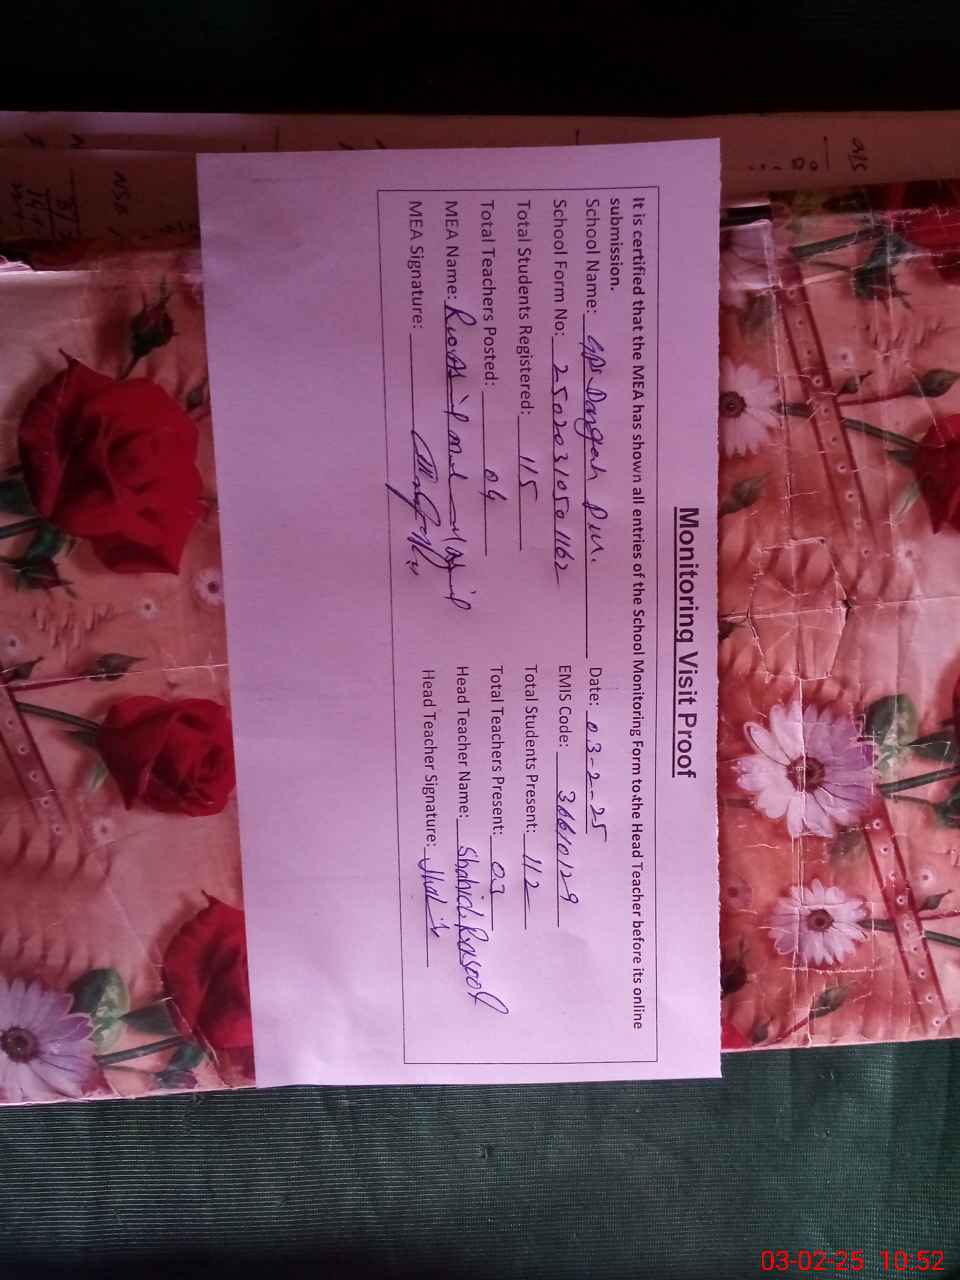 Monitoring Visit Proof
It is certified that the MEA has shown all entries of the School Monitoring Form to the Head Teacher before its online
submission.
School Name: GPS Dangah Date: 03-2-25
School Form No: 25020310501162 EMIS Code: 36610129
Total Students Registered: 115 Total Students Present: 112
Total Teachers Posted: 04 Total Teachers Present: 03
MEA Name: Head Teacher Name: Shahid Rasool
MEA Signature: Head Teacher Signature:
03-02-25 10:52